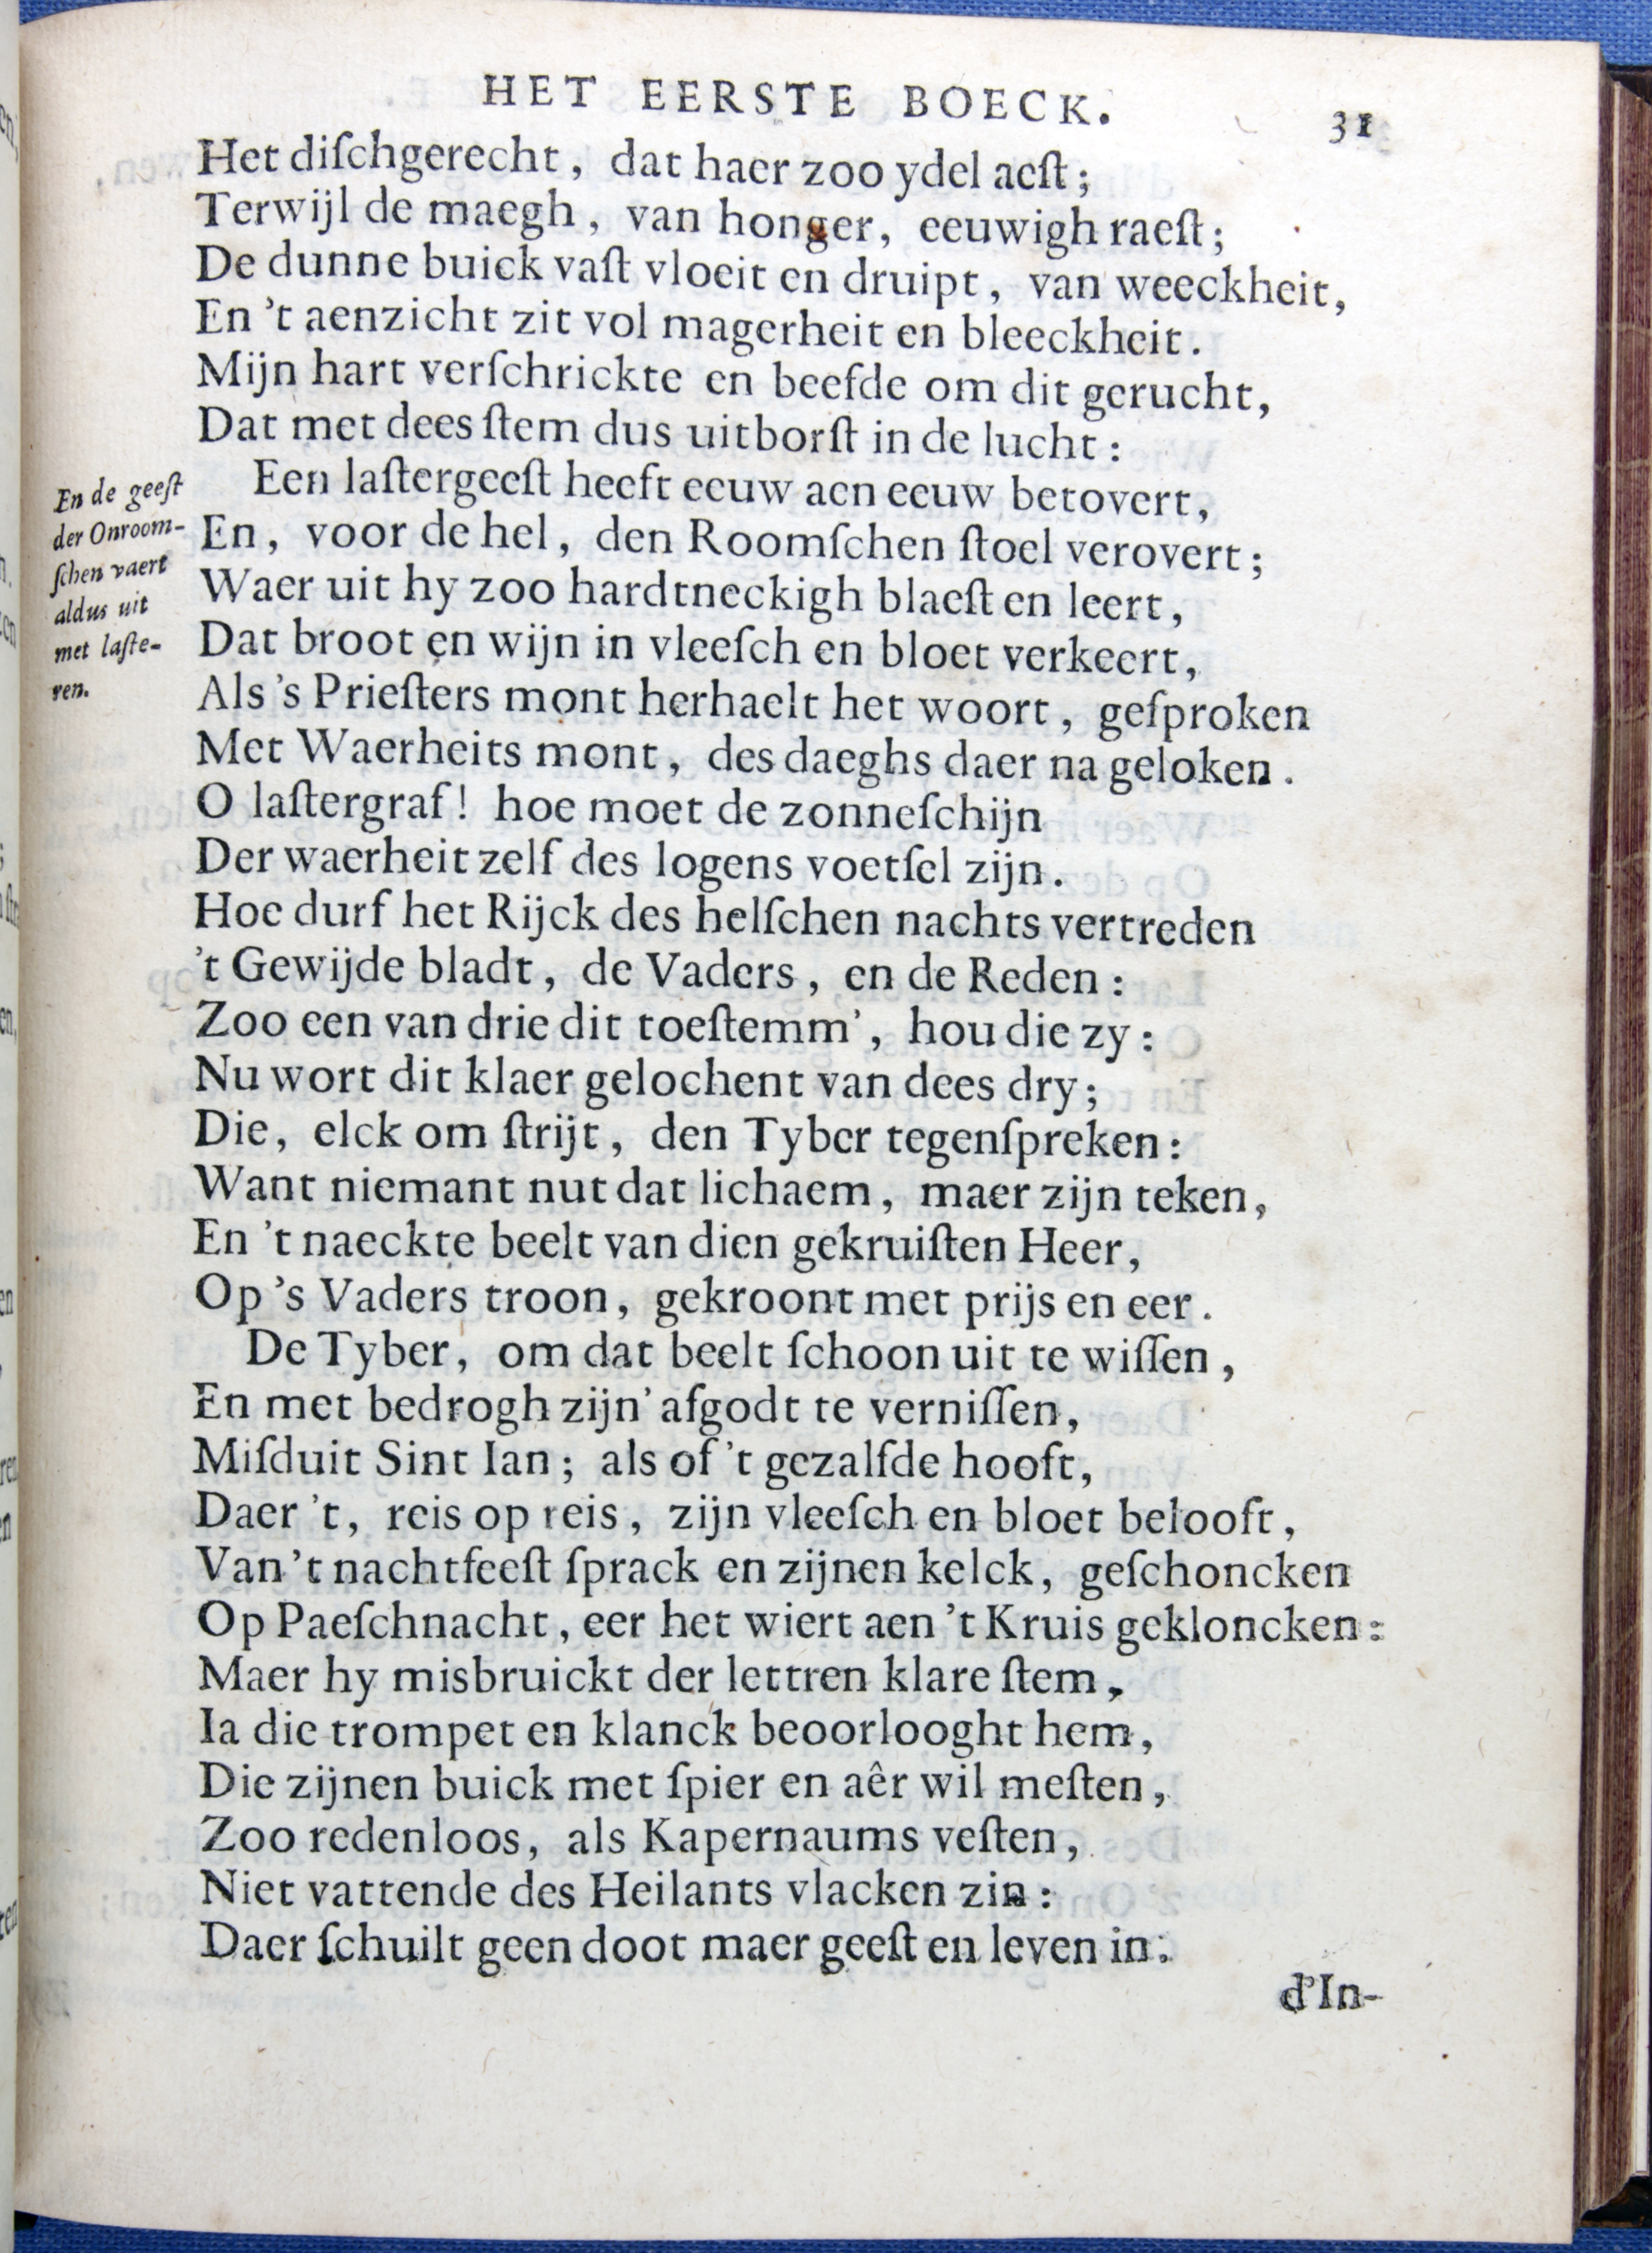 HET EERSTE BOECK.
31
Het diſchgerecht, dat haer zoo ydel aeſt;
Terwijl de maegh, van honger, eeuwigh raeſt;
De dunne buick vaſt vloeit en druipt, van weeckheit,
En 't aenzicht zit vol magerheit en bleeckheit.
Mijn hart verſchrickte en beefde om dit gerucht,
Dat met dees ſtem dus uitborſt in de lucht:
En de geeſt
der Onroom-
ſchen vaert
aldus uit
met laſte-
ren.
Een laſtergeeſt heeft eeuw aen eeuw betovert,
En, voor de hel, den Roomſchen ſtoel verovert;
Waer uit hy zoo hardtneckigh blaeſt en leert,
Dat broot en wijn in vleeſch en bloet verkeert,
Als 's Prieſters mont herhaelt het woort, geſproken
Met Waerheits mont, des daeghs daer na geloken.
O laſtergraf! hoe moet de zonneſchijn
Der waerheit zelf des logens voetſel zijn.
Hoe durf het Rijck des helſchen nachts vertreden
't Gewijde bladt, de Vaders, en de Reden:
Zoo een van drie dit toeſtemm', hou die zy:
Nu wort dit klaer gelochent van dees dry;
Die, elck om ſtrijt, den Tyber tegenſpreken:
Want niemant nut dat lichaem, maer zijn teken,
En 't naeckte beelt van dien gekruiſten Heer,
Op 's Vaders troon, gekroont met prijs en eer.
De Tyber, om dat beelt ſchoon uit te wiſſen,
En met bedrogh zijn' afgodt te verniſſen,
Miſduit Sint Ian; als of 't gezalfde hooft,
Daer 't, reis op reis, zijn vleeſch en bloet belooft,
Van 't nachtfeeſt ſprack en zijnen kelck, geſchoncken
Op Paeſchnacht, eer het wiert aen 't Kruis gekloncken:
Maer hy misbruickt der lettren klare ſtem,
Ia die trompet en klanck beoorlooght hem,
Die zijnen buick met ſpier en aêr wil meſten,
Zoo redenloos, als Kapernaums veſten,
Niet vattende des Heilants vlacken zin:
Daer ſchuilt geen doot maer geeſt en leven in.
d'In-